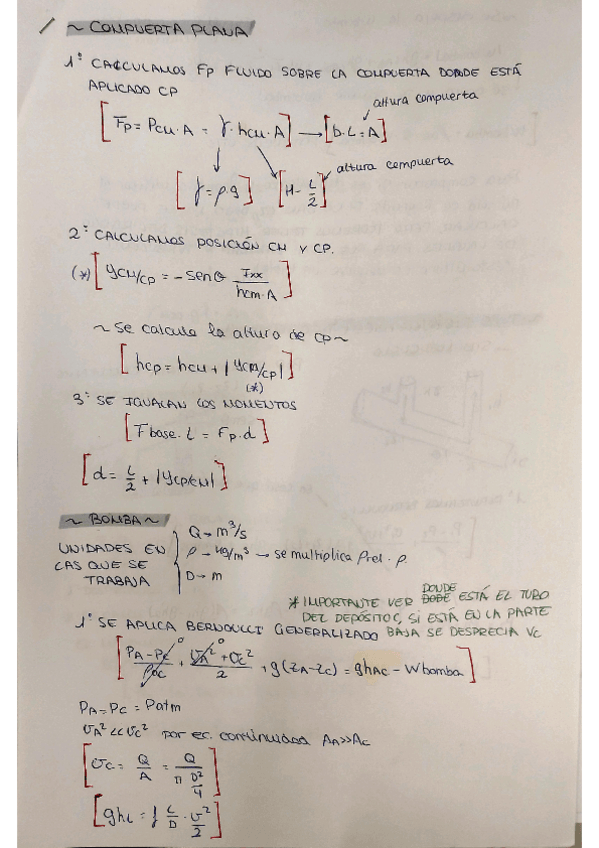 ~ COMPUERTA PLANA
1º CALCULAMOS FP FLUIDO SOBRE LA COMPUERTA DONDE ESTÁ
APLICADO CP
altura compuerta
[Fp = Pcm · A = γ · hcm · A] → [b · L = A]
altura compuerta
[γ = ρ · g] [H - L/2]
2º CALCULAMOS POSICIÓN CM Y CP.
(*) [ycm/cp = - senθ Ixx / hcm · A]
~ Se calcula la altura de CP ~
[hcp = hcm + |ycm/cp|]
(*)
3º SE IGUALAN LOS MOMENTOS
[Fbase · L = Fp · d]
[d = L/2 + |ycp/cm|]
~ BOMBA ~
UNIDADES EN
LAS QUE SE
TRABAJA
Q → m³/s
ρ → kg/m³ → se multiplica Prel · ρ.
D → m
* IMPORTANTE VER DONDE ESTÁ EL TUBO
DEL DEPÓSITO, SI ESTÁ EN LA PARTE
BAJA SE DESPRECIA Vc
1º SE APLICA BERNOULLI GENERALIZADO
[PA - Pc / ρ + vA² + vc² / 2 + g(zA - zc) = ghAC - Wbomba]
PA = Pc = Patm
vA² << vc² por ec. continuidad AA >> Ac
[vc = Q/A = Q / π D²/4]
[ghL = f L/D · v²/2]